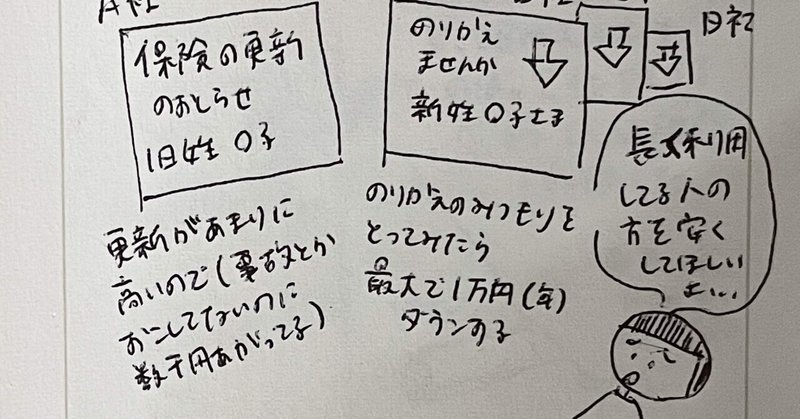 A社
保険の更新
のおしらせ
旧姓〇子
更新があまりに
高いので(事故とか
おこしてないのに
数千円あがってる)
のりかえ
ませんか
新姓〇子さま
のりかえのみつもりを
とってみたら
最大で1万円(年)
ダウンする
日社
長く利用
してる人の
方を安く
してほしい
よ…